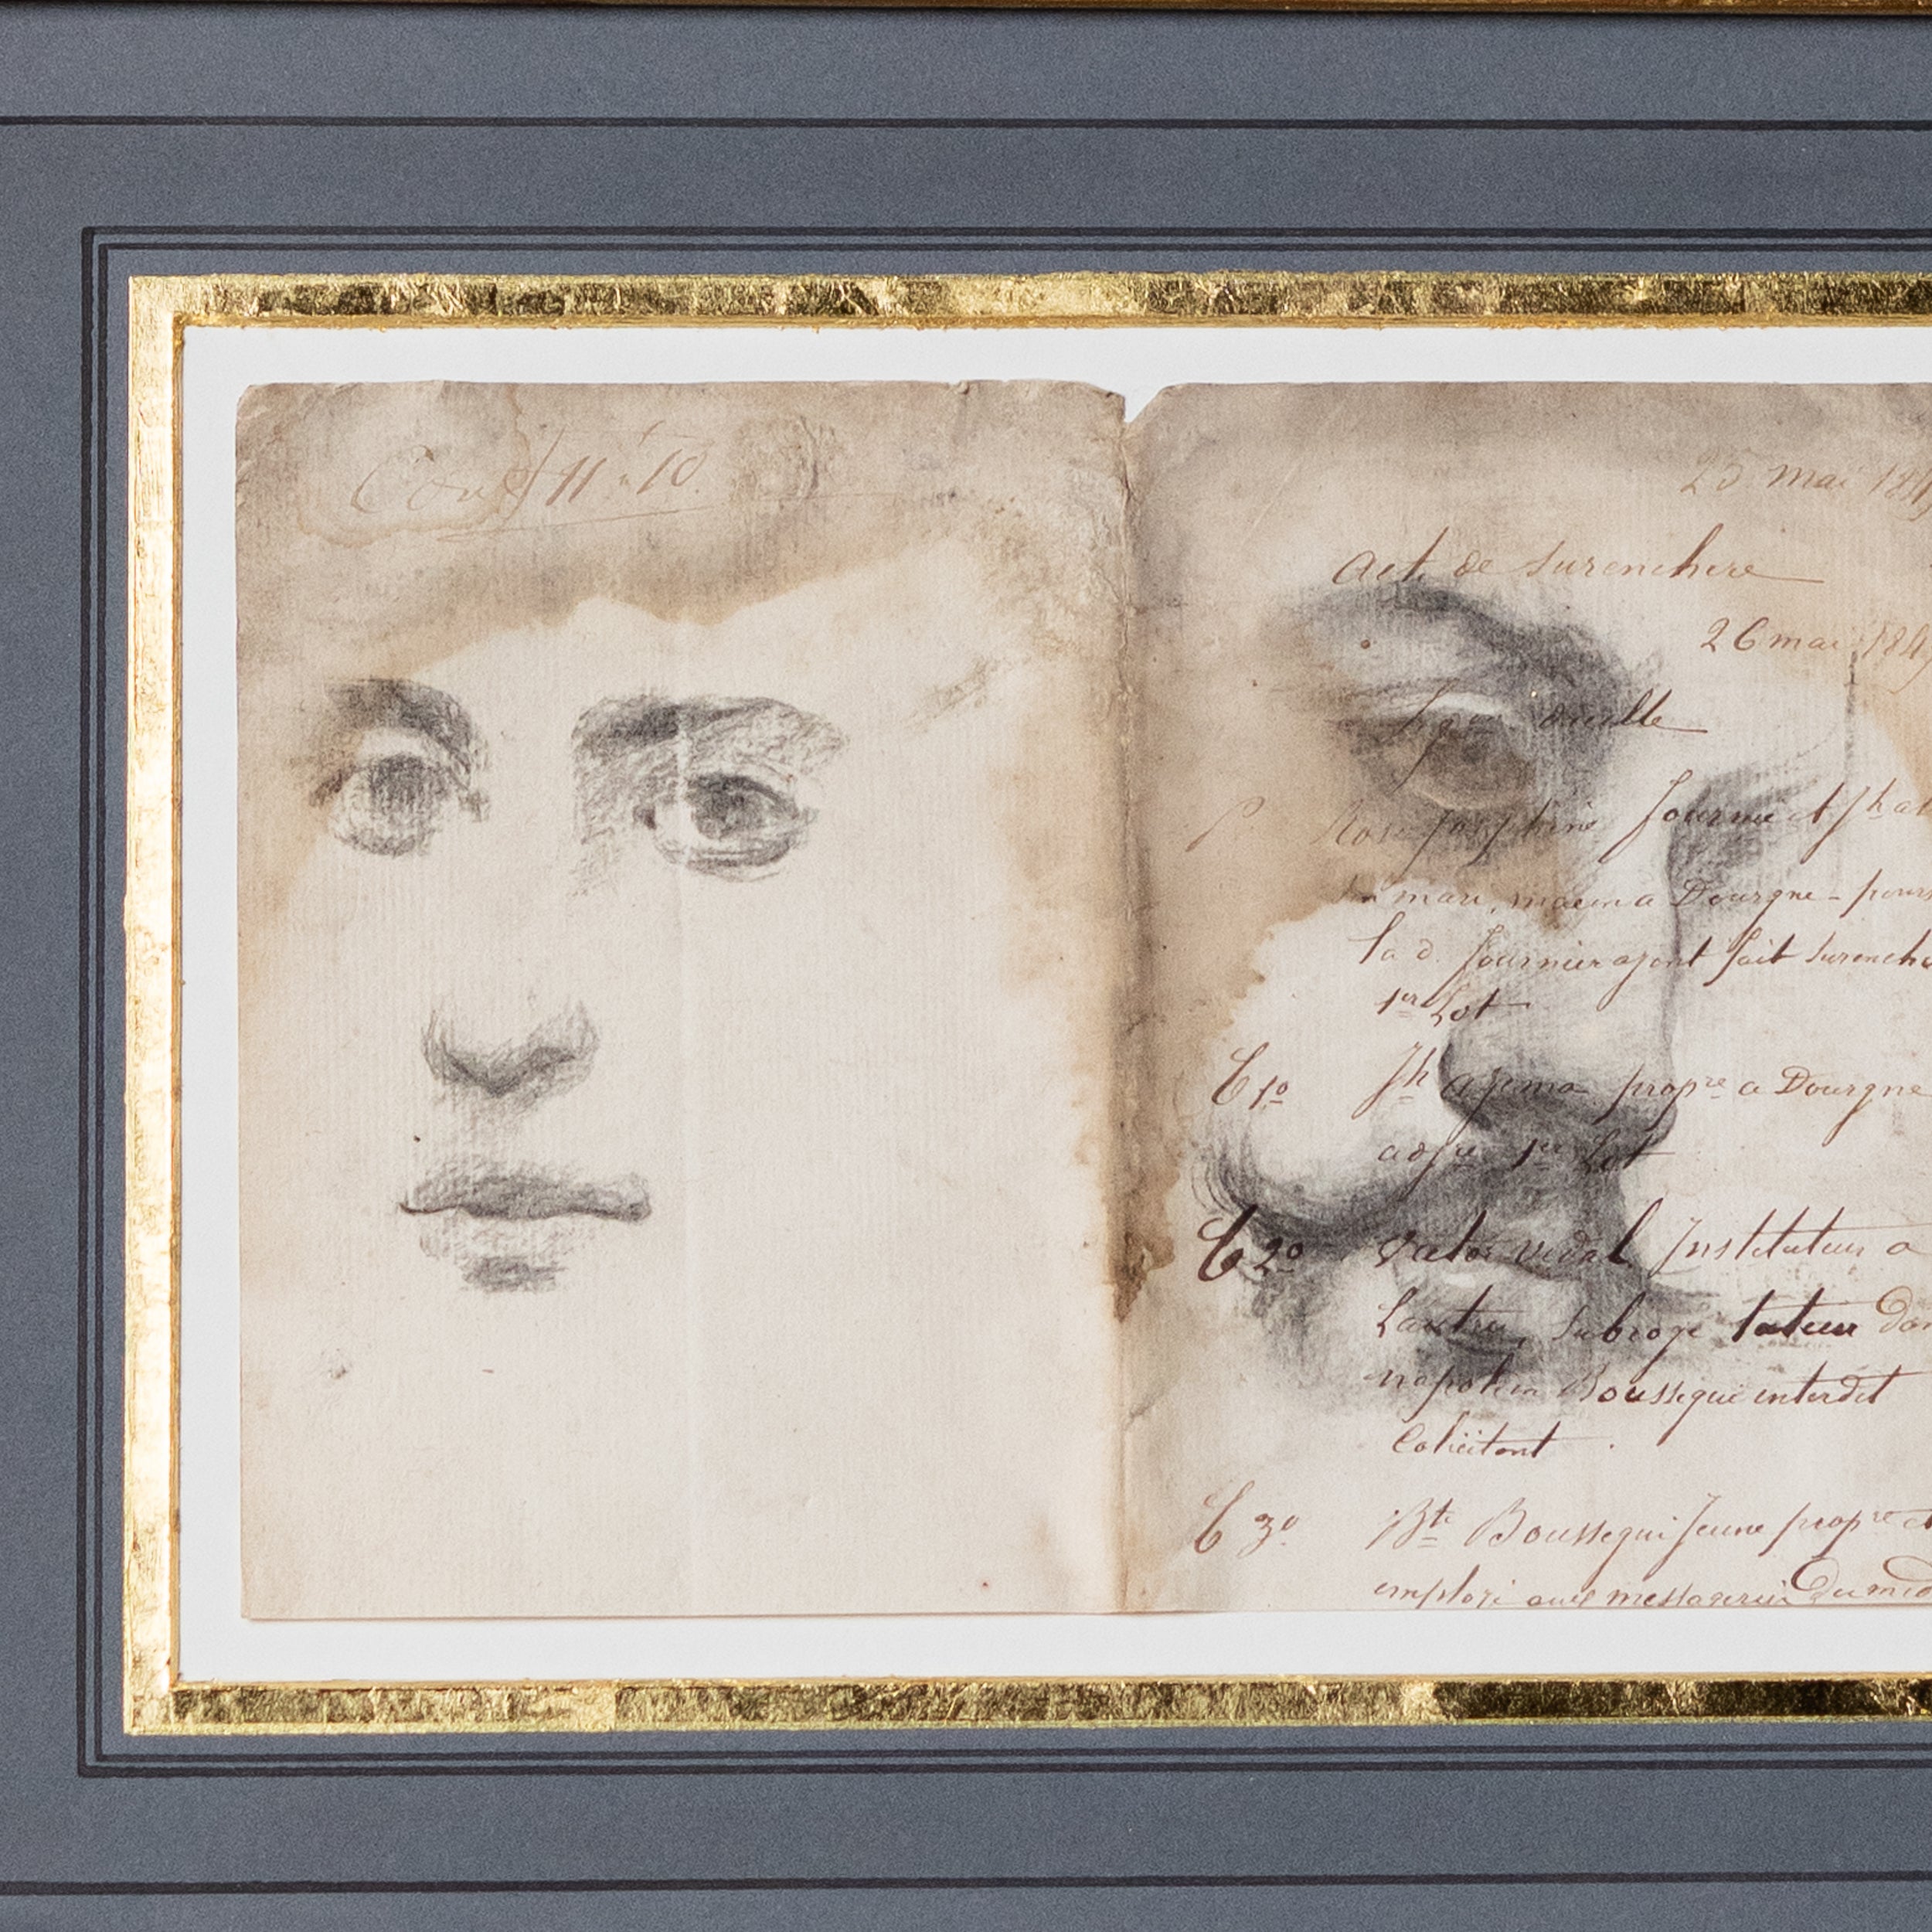 11 10
25 mai 184
acte de surenchere
26 mai 184
Rose Josephine fournier et Jh
mari, macon a Dourgne - pour
la d. fournier ayant fait surenche
1er Lot
C 1o Jh azema propre a Dourgne
adjre 1er Lot
C 2o Victor vidal Instituteur a
Lautrec, subrogé tuteur
napoleon Boussegui interdit
Colicitant.
C 3o Bte Boussegui Jeune propre et
emploié aux messageries Du mid